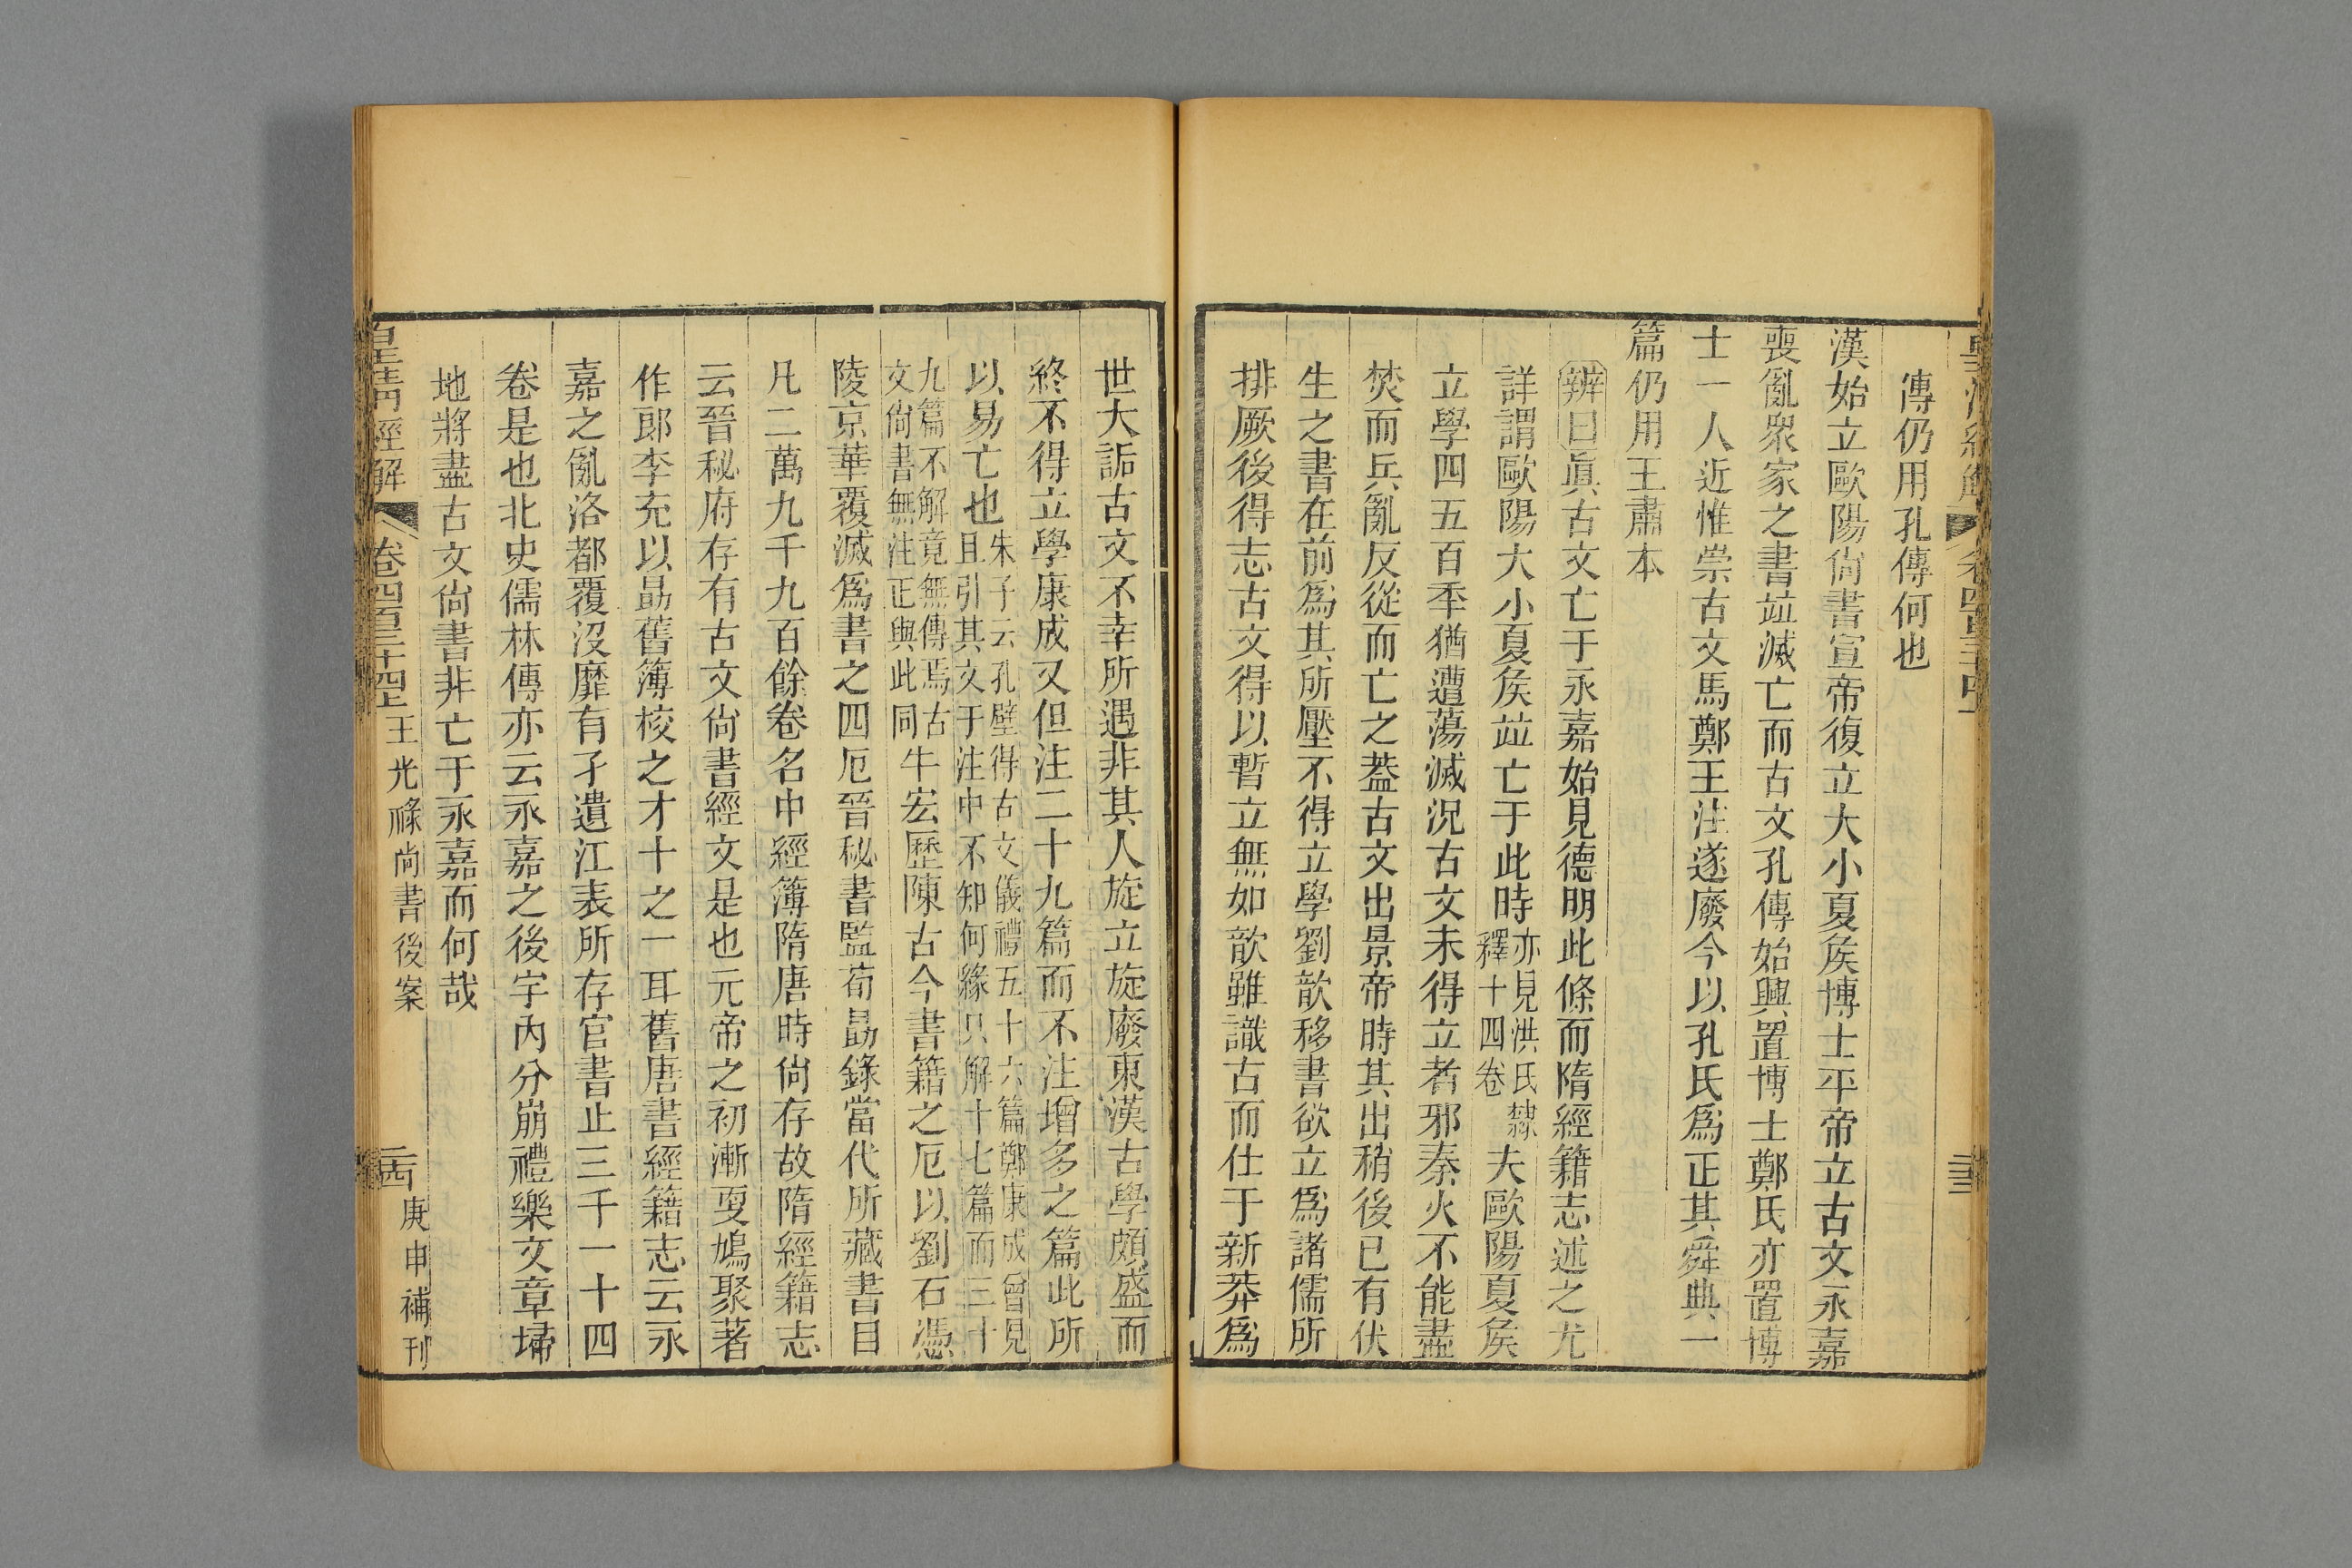 傳仍用孔傳何也
漢始立歐陽尙書宣帝復立大小夏矦博士平帝立古文永嘉
喪亂衆家之書竝滅亡而古文孔傳始興置博士鄭氏亦置博
士一人近惟崇古文馬鄭王注遂廢今以孔氏爲正其舜典一
篇仍用王肅本
辨曰眞古文亡于永嘉始見德明此條而隋經籍志述之尤
詳謂歐陽大小夏矦竝亡于此時亦見洪氏隸釋十四卷夫歐陽夏矦
立學四五百年猶遭蕩滅況古文未得立者邪秦火不能盡
焚而兵亂反從而亡之葢古文出景帝時其出稍後已有伏
生之書在前爲其所壓不得立學劉歆移書欲立爲諸儒所
排厥後得志古文得以暫立無如歆雖識古而仕于新莽爲
世大詬古文不幸所遇非其人旋立旋廢東漢古學頗盛而
終不得立學康成又但注二十九篇而不注增多之篇此所
以易亡也朱子云孔壁得古文儀禮五十六篇鄭康成曾見且引其文于注中不知何緣只解十七篇而三十
九篇不解竟無傳焉古文尙書無注正與此同牛宏歷陳古今書籍之厄以劉石憑
陵京華覆滅爲書之四厄晉秘書監荀勗錄當代所藏書目
凡二萬九千九百餘卷名中經簿隋唐時尙存故隋經籍志
云晉秘府存有古文尙書經文是也元帝之初漸更鳩聚著
作郞李充以勗舊簿校之才十之一耳舊唐書經籍志云永
嘉之亂洛都覆沒靡有孑遺江表所存官書止三千一十四
卷是也北史儒林傳亦云永嘉之後宇內分崩禮樂文章埽
地將盡古文尙書非亡于永嘉而何哉
皇淸經解 卷四百三十四上 王光祿尙書後案 二四 庚申補刊